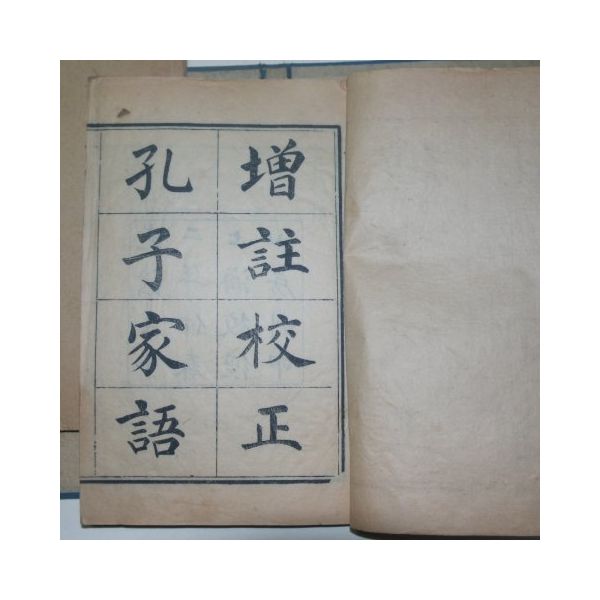 増註校正
孔子家語